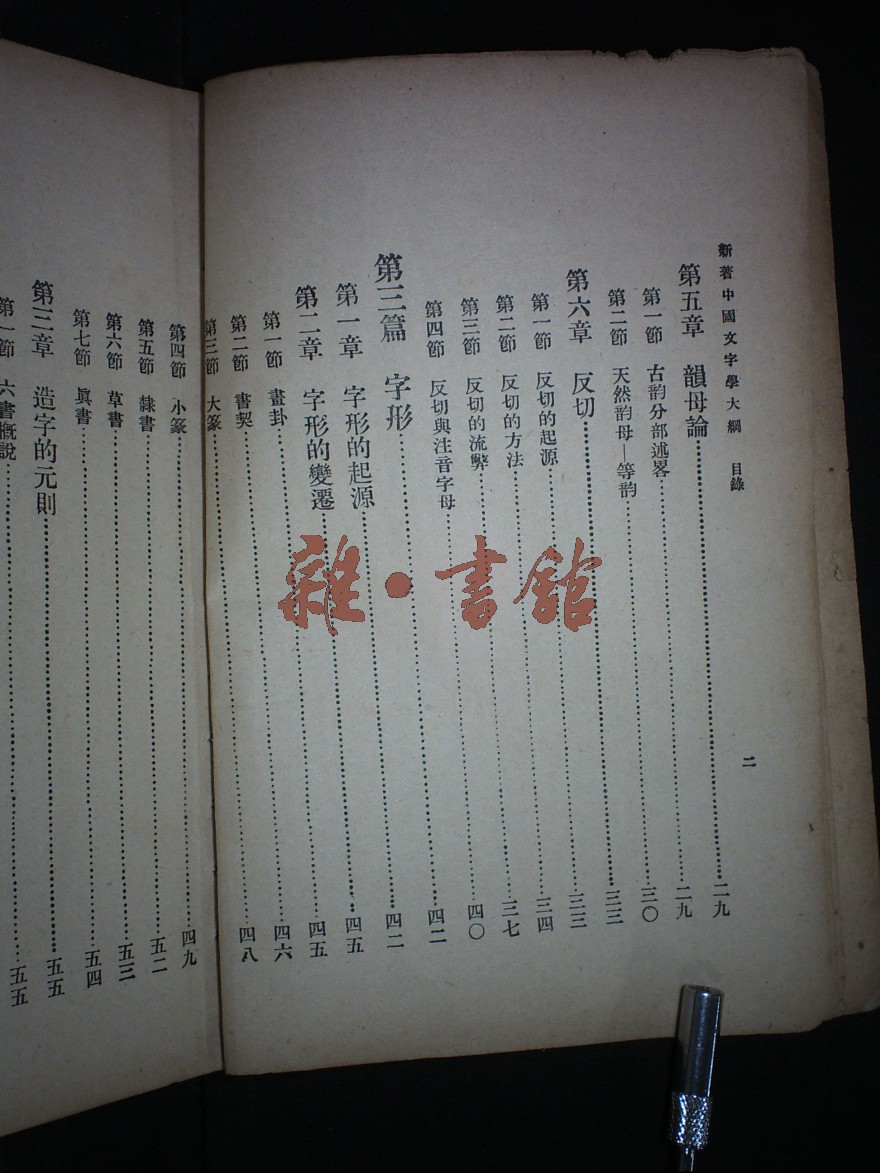 新著中國文字學大綱 目錄
二
第五章 韻母論……二九
第一節 古韵分部述畧……二九
第二節 天然韵母—等韵……三〇
第六章 反切……三三
第一節 反切的起源……三三
第二節 反切的方法……三四
第三節 反切的流弊……三七
第四節 反切與注音字母……四〇
第三篇 字形……四二
第一章 字形的起源……四二
第二章 字形的變遷……四五
第一節 畫卦……四五
第二節 書契……四六
第三節 大篆……四八
第四節 小篆……四九
第五節 隸書……五二
第六節 草書……五三
第七節 眞書……五四
第三章 造字的元則……五五
第一節 六書概說……五五
雜·書館